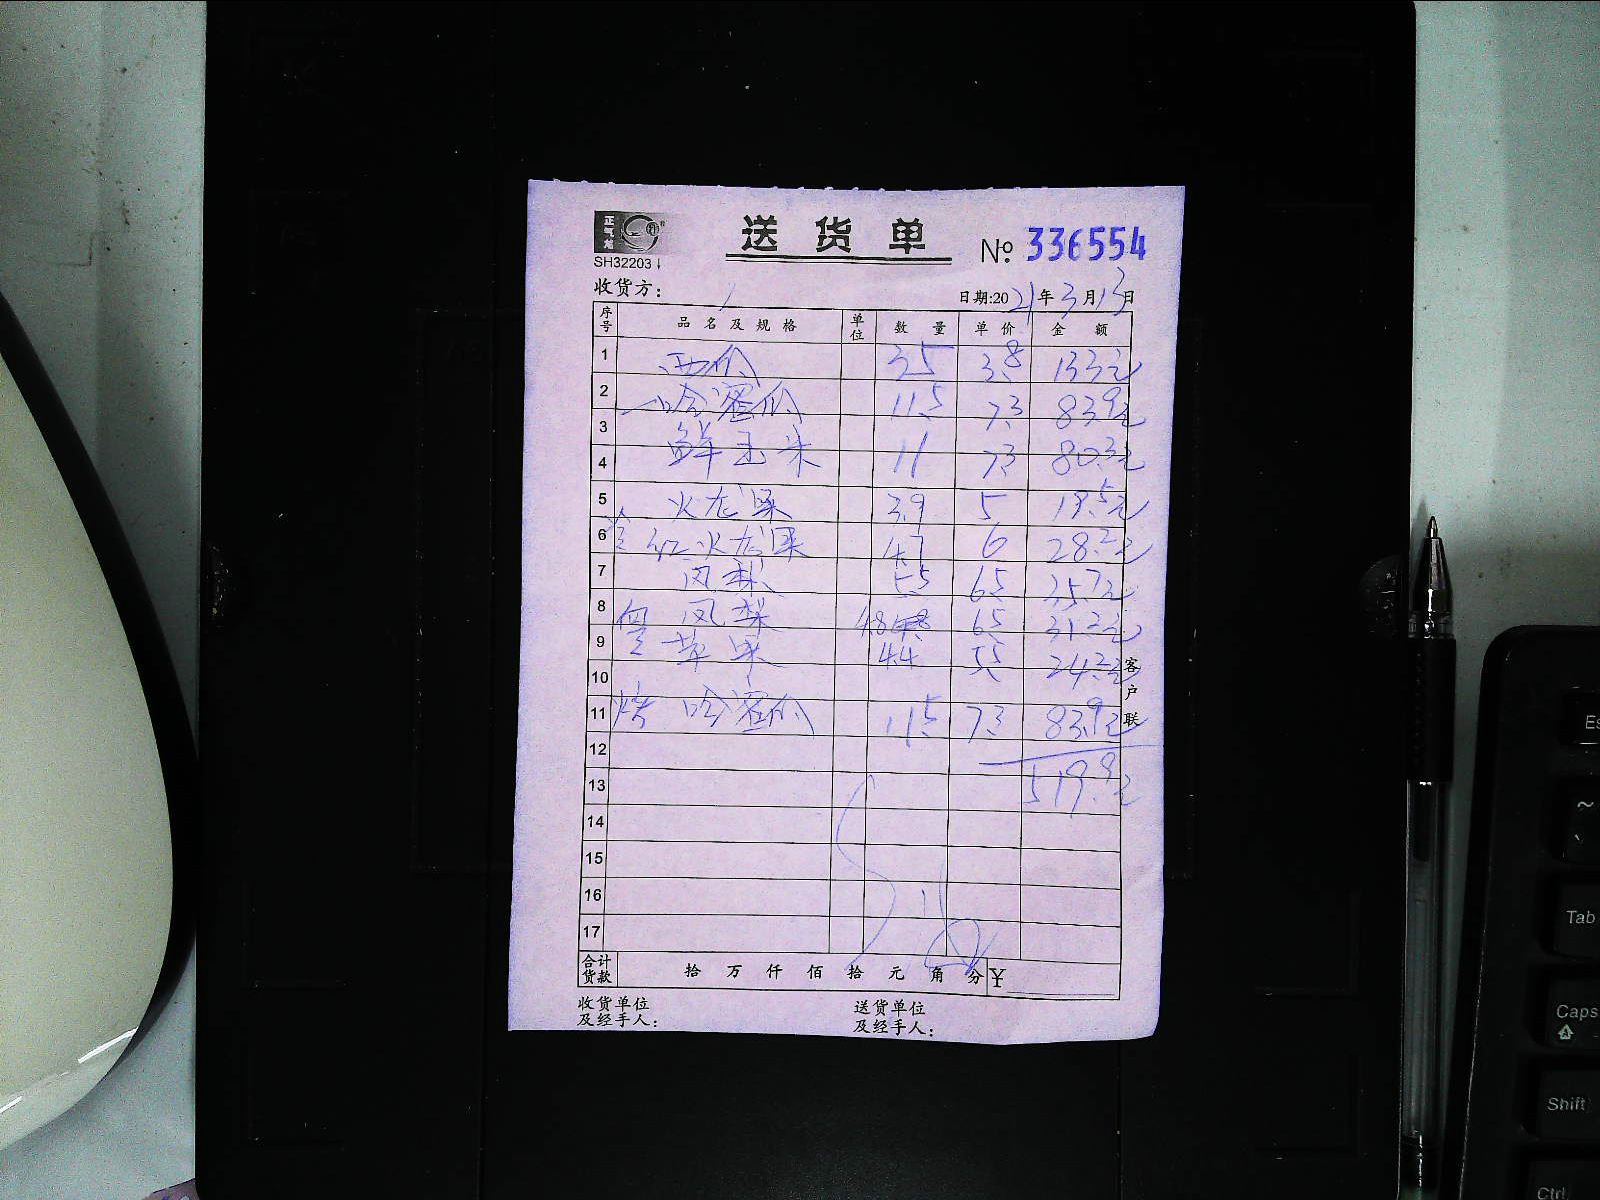 正气
SH32203
送货单
№ 336554
收货方：
日期:2021年3月13日
序号 品名及规格 单位 数量 单价 金额
1 西瓜 35 3.8 133元
2 哈密瓜 11.5 7.3 83.9元
3
4 鲜玉米 11 7.3 80.3元
5 火龙果 3.9 5 19.5元
6 红火龙果 4.7 6 28.2元
7 凤梨 5.5 6.5 35.7元
8 凤梨 4.8 6.5 31.2元
9 苹果 4.4 5.5 24.2元
10
11 烤 哈密瓜 11.5 7.3 83.9元
12
13 519.9元
14
15
16
17
客户联
合计货款 拾 万 仟 佰 拾 元 角 分 ¥
收货单位及经手人：
送货单位及经手人：
Es
~
、
Tab
Caps
Shift
Ctrl